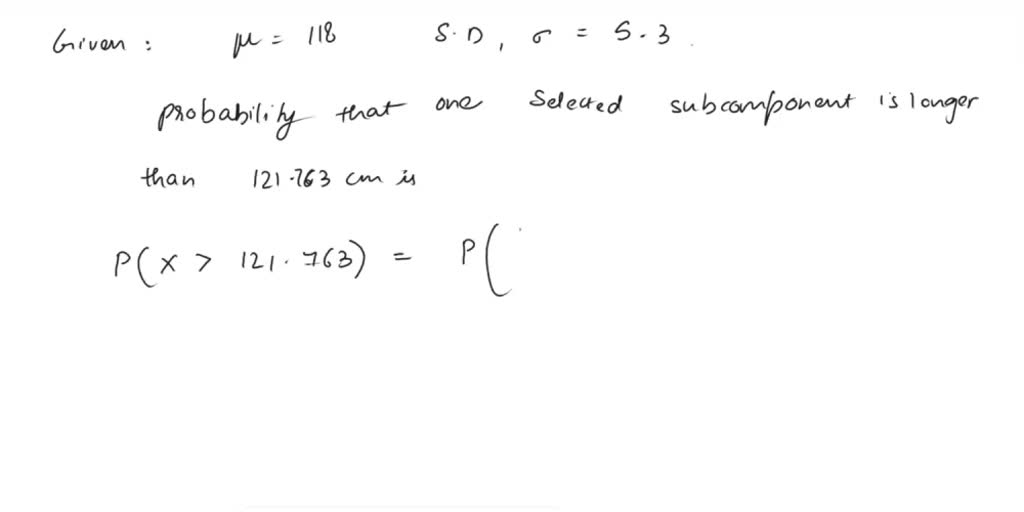 Given : μ = 118 S.D, σ = 5.3.
probability that one selected subcomponent is longer
than 121.763 cm is
P(x > 121.763) = P(